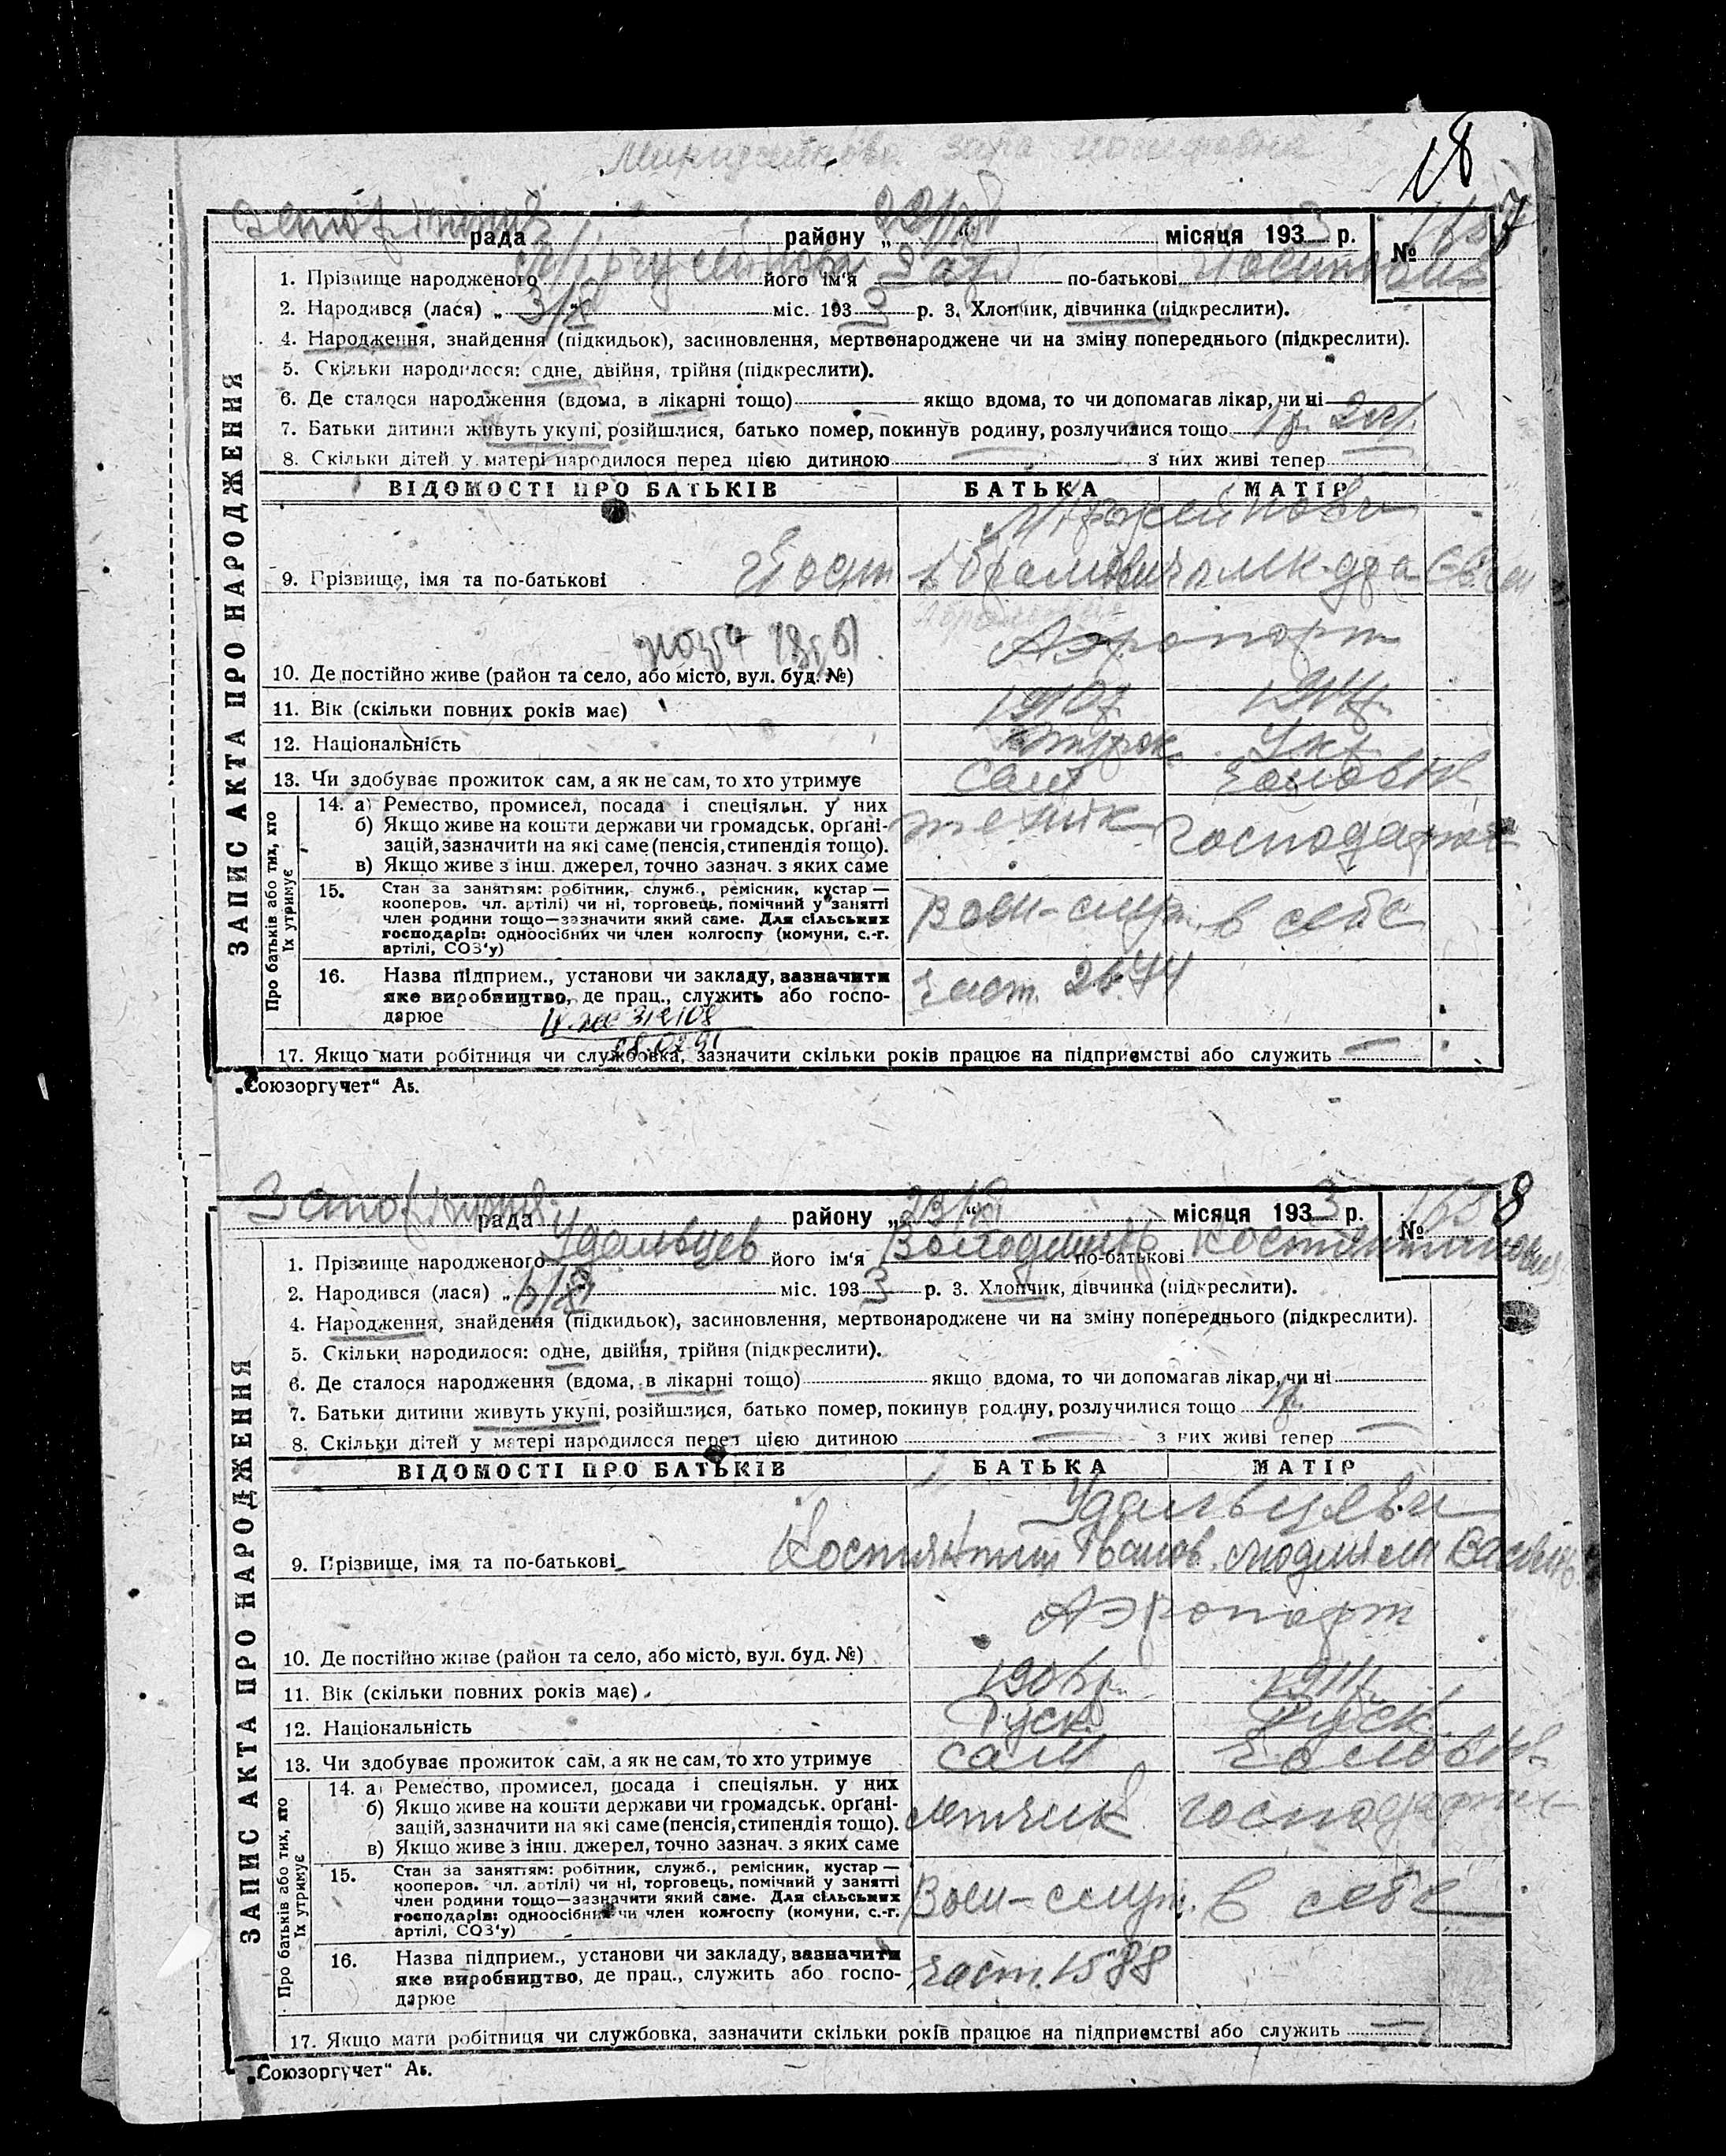 18
рада района „22/XI“ місяця 1933 р. №
1. Прізвище народженого його ім'я по-батькові
2. Народився (лася) „3/X міс. 1933 р. 3. Хлопчик, дівчинка (підкреслити).
4. Народження, знайдення (підкидьок), засиновлення, мертвонароджене чи на зміну попереднього (підкреслити).
5. Скільки народилося: одне, двійня, трійня (підкреслити).
6. Де сталося народження (вдома, в лікарні тощо) якщо вдома, то чи допомагав лікар, чи ні
7. Батьки дитини живуть укупі, розійшлися, батько помер, покинув родину, розлучилися тощо 1 р.
8. Скільки дітей у матері народилося перед цією дитиною — з них живі тепер —
ЗАПИС АКТА ПРО НАРОДЖЕННЯ
ВІДОМОСТІ ПРО БАТЬКІВ БАТЬКА МАТІР
9. Прізвище, імя та по-батькові
Аэропорт
10. Де постійно живе (район та село, або місто, вул. буд. №)
11. Вік (скільки повних років має)
12. Національність Укр.
13. Чи здобуває прожиток сам, а як не сам, то хто утримує сам чоловік
Про батьків або тих, хто їх утримує
14. а) Ремество, промисел, посада і спеціяльн. у них
б) Якщо живе на кошти держави чи громадськ. органі-
зацій, зазначити на які саме (пенсія, стипендія тощо).
в) Якщо живе з інш. джерел, точно зазнач. з яких саме
технік
15. Стан за заняттям: робітник, служб., ремісник, кустар —
кооперов. чл. артілі) чи ні, торговець, помічний у занятті
член родини тощо—зазначити який саме. Для сільських
господарів: одноосібних чи член колгоспу (комуни, с.-г.
артілі, СОЗ'у)
Воен-служ. в себе
16. Назва підприєм., установи чи закладу, зазначити
яке виробництво, де прац., служить або госпо-
дарює
част.
17. Якщо мати робітниця чи службовка, зазначити скільки років працює на підприємстві або служить —
„Союзоргучет“ Аб.
рада району „23/XI“ місяця 1933 р. № 1658
1. Прізвище народженого Удальцев його ім'я Володимир по-батькові
2. Народився (лася) „ міс. 1933 р. 3. Хлопчик, дівчинка (підкреслити).
4. Народження, знайдення (підкидьок), засиновлення, мертвонароджене чи на зміну попереднього (підкреслити).
5. Скільки народилося: одне, двійня, трійня (підкреслити).
6. Де сталося народження (вдома, в лікарні тощо) якщо вдома, то чи допомагав лікар, чи ні
7. Батьки дитини живуть укупі, розійшлися, батько помер, покинув родину, розлучилися тощо 1 р.
8. Скільки дітей у матері народилося перед цією дитиною — з них живі тепер —
ЗАПИС АКТА ПРО НАРОДЖЕННЯ
ВІДОМОСТІ ПРО БАТЬКІВ БАТЬКА МАТІР
Удальцеви
9. Прізвище, імя та по-батькові Костянтин Іванов.
Аэропорт
10. Де постійно живе (район та село, або місто, вул. буд. №)
11. Вік (скільки повних років має) 1911
12. Національність Руск. Руск.
13. Чи здобуває прожиток сам, а як не сам, то хто утримує сам чоловік
Про батьків або тих, хто їх утримує
14. а) Ремество, промисел, посада і спеціяльн. у них
б) Якщо живе на кошти держави чи громадськ. органі-
зацій, зазначити на які саме (пенсія, стипендія тощо).
в) Якщо живе з інш. джерел, точно зазнач. з яких саме
летчик
15. Стан за заняттям: робітник, служб., ремісник, кустар —
кооперов. чл. артілі) чи ні, торговець, помічний у занятті
член родини тощо—зазначити який саме. Для сільських
господарів: одноосібних чи член колгоспу (комуни, с.-г.
артілі, СОЗ'у)
Воен-служ. в себе
16. Назва підприєм., установи чи закладу, зазначити
яке виробництво, де прац., служить або госпо-
дарює
част. 1588
17. Якщо мати робітниця чи службовка, зазначити скільки років працює на підприємстві або служить —
„Союзоргучет“ Аб.